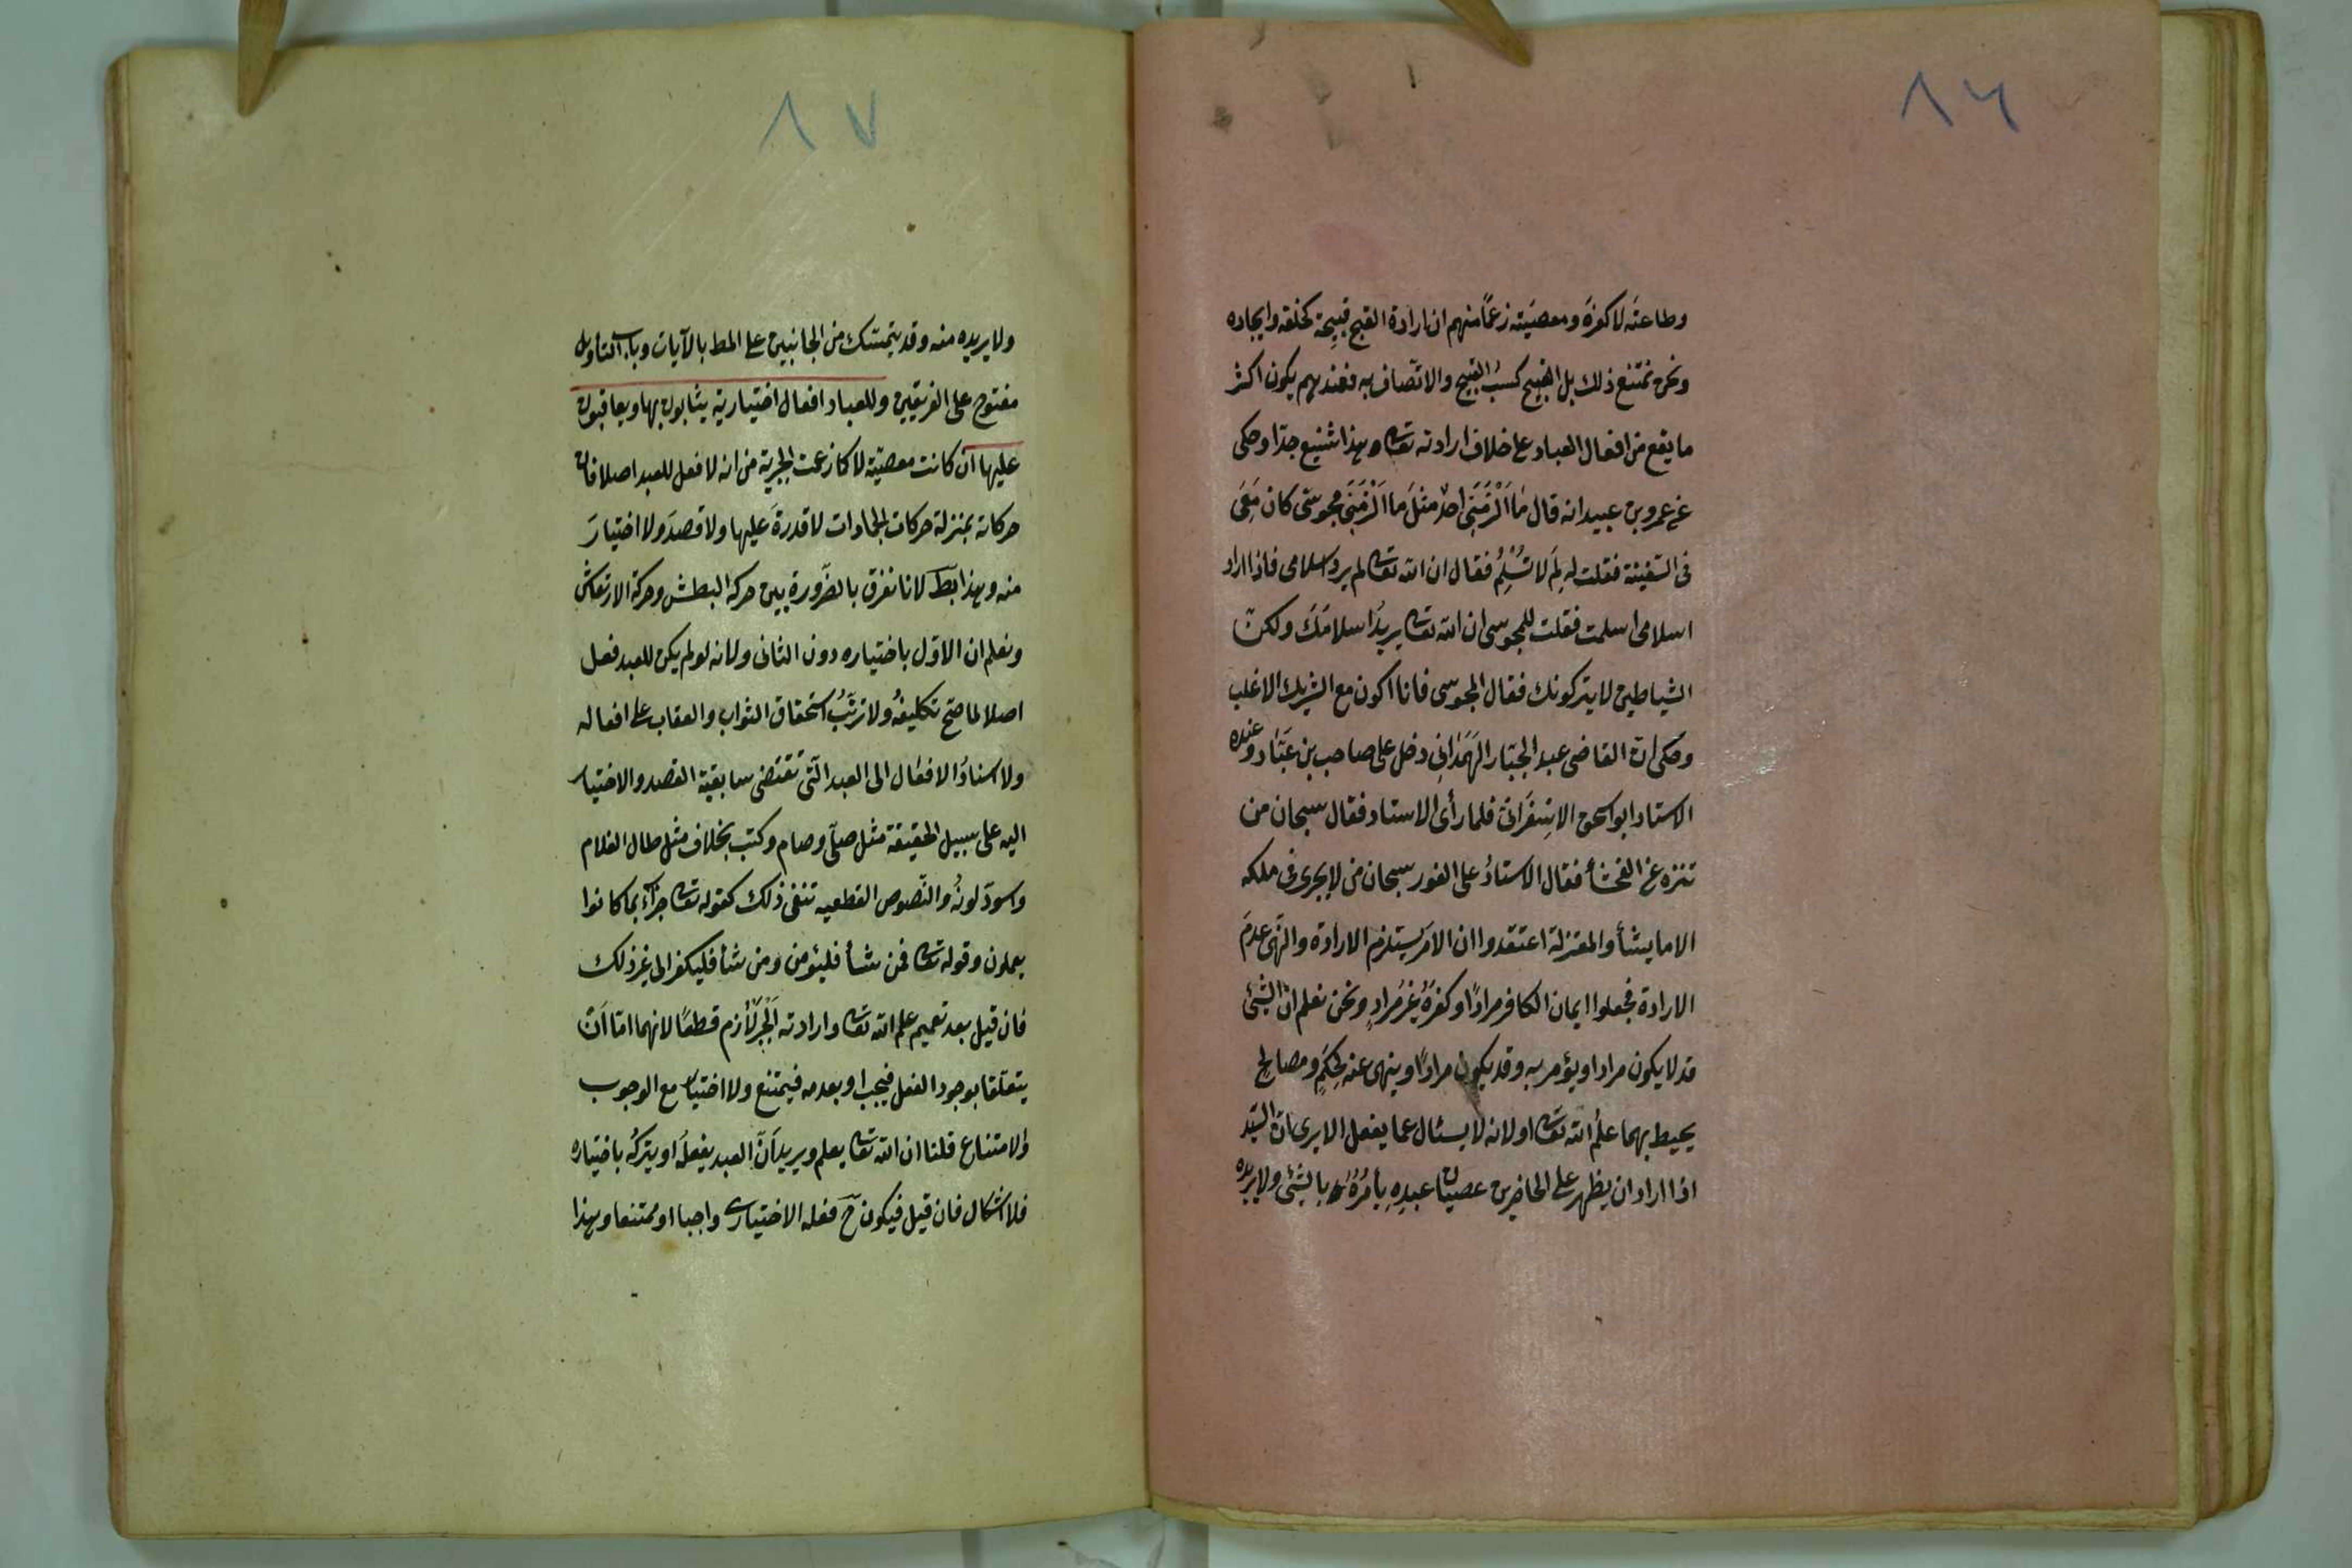 ٨٦
وطاعتَه لا كفرَه ومعصيَته زعمًا منهم ان ارادة القبيح قبيحة كخلقه وايجاده
ونحن نمتنع ذلك بل القبيح كسبُ القبيح والاتّصاف به فعندهم يكون اكثر
ما يقع من افعال العباد على خلاف ارادته تعالى وهذا شنيع جدّا وحكى
عن عمرو بن عبيد انه قال مَا اَلْزَمَنِى احدٌ مثلَ ما اَلْزَمَنِى مجوسىّ كان مَعِىَ
فى السّفينة فقلت له لِمَ لا تُسْلِمُ فقال ان الله تعالى لم يرد اسلامى فاذا اراد
اسلامى اسلمت فقلت للمجوسى ان الله تعالى يريدُ اسلامَكَ ولكنّ
الشياطين لا يتركونك فقال المجوسى فانا اكون مع الشريك الاغلب
وحكى انّ القاضى عبد الجبّار الهَمَدَانِى دخل على صاحب بن عَبَّاد وعنده
الاستاد ابو اسحق الاسِفَرَانى فلما رأى الاستاد فقال سبحان من
تنزه عن الفحشأ فقال الاستادُ على الفور سبحان من لا يجرى فى ملكه
الا ما يشأ والمعتزلة اعتقدوا ان الامرَ يستلزم الارادة والنّهى عدمَ
الارادة فجعلوا ايمان الكافر مرادًا وكفرَهُ غيرَ مرادٍ ونحن نعلم انّ الشئ
قد لا يكون مرادا ويؤمر به وقد يكون مرادًا وينهى عنه لحِكَمٍ ومصالح
يحيط بهما علمُ الله تعالى او لانه لا يسئال عما يفعل الا يرى انّ السّيّد
اذا اراد ان يظهر على الحاضرين عصيان عبدِهِ يأمُرُهُ بالشئ ولا يريده
٨٧
ولا يريده منه وقد يتمسّك من الجانبين على المط بالآيات وباب التاويل
مفتوح على الفريقين وللعباد افعال اختيارية يثابون بها ويعاقبون
عليها ان كانت معصيّة لا كما زعمت الجبرية من انه لا فعل للعبد اصلا فان
حركاته بمنزلة حركات الجمادات لا قدرةَ عليها ولا قصدَ ولا اختيارَ
منه وهذا بط لانا نفرق بالضّرورة بين حركه البطش وحركة الارتعاش
ونعلم ان الاوّل باختياره دون الثانى ولانه لو لم يكن للعبد فعل
اصلا لما صحّ تكليفُه ولا ترتّبُ استحقاق الثواب والعقاب على افعاله
ولا اسنادُ الافعال الى العبد الّتى تقتضى سابقية القصد والاختيار
اليه على سبيل الحقيقة مثل صلّى وصام وكتب بخلاف مثل طال الغلام
واسودّ لونُه والنّصوص القطعيه تنفى ذلك كقوله تعالى جزآءً بما كانوا
يعملون وقوله تعالى فمن شأ فليئومن ومن شأ فليكفر الى غير ذلك
فان قيل بعد تعميم علم الله تعالى وارادته اَلْجَبْرُ لَازم قطعًا لانهما امّا اَنْ
يتعلّقا بوجود الفعل فيجب او بعدمه فيمتنع ولا اختيار مع الوجوب
والامتناع قلنا ان الله تعالى يعلم ويريد اَنَّ العبد يفعلُه او يتركُه باختياره
فلا اشكال فان قيل فيكون ح فعله الاختيارى واجبا او ممتنعا وهذا